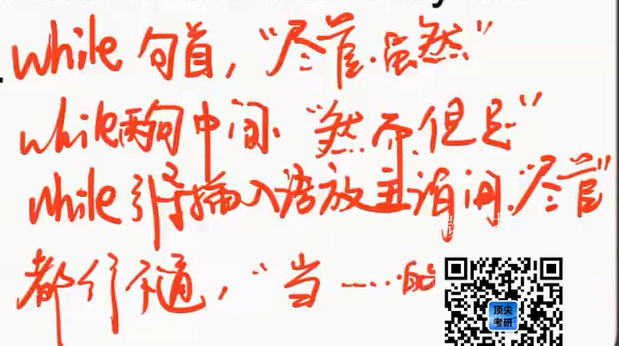 while 句首，“尽管.虽然”
while两句中间.“然而.但是”
while引导插入语放主谓间.“尽管”
都行不通，“当……的
顶尖
考研